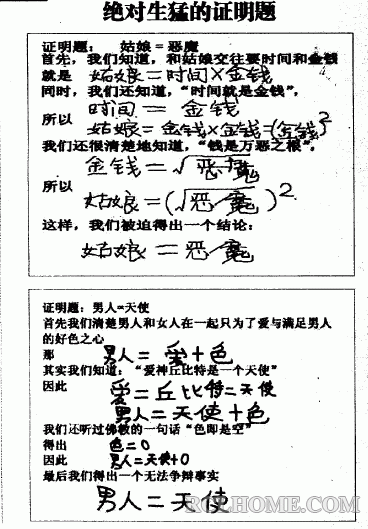 绝对生猛的证明题
证明题： 姑娘=恶魔
首先，我们知道，和姑娘交往要时间和金钱
就是 姑娘=时间×金钱
同时，我们还知道，“时间就是金钱”，
时间 = 金钱
所以 姑娘=金钱×金钱=(金钱)²
我们还很清楚地知道，“钱是万恶之根”，
金钱=√恶魔
所以
姑娘=(√恶魔)²
这样，我们被迫得出一个结论：
姑娘=恶魔
证明题：男人=天使
首先我们清楚男人和女人在一起只为了爱与满足男人
的好色之心
那 男人=爱+色
其实我们知道：“爱神丘比特是一个天使”
因此 爱=丘比特=天使
男人=天使+色
我们还听过佛教的一句话“色即是空”
得出 色=0
因此 男人=天使+0
最后我们得出一个无法争辩事实
男人=天使